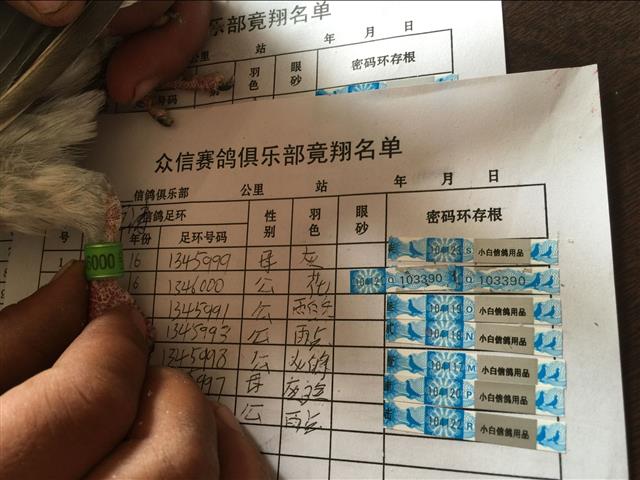 乐部竟翔名单
公里 站 年 月 日
号码 羽色 眼砂 密码环存根
众信赛鸽俱乐部竟翔名单
信鸽俱乐部 公里 站 年 月 日
信鸽足环 性别 羽色 眼砂 密码环存根
号 年份 足环号码
1 16 1345999 母 灰 10 23 S 小白信鸽用品
6000
16 1346000 公 花 10 21 Q 103390 Q 103390
1345991 公 雨点 10 19 O 小白信鸽用品
1345993 公 雨点 10 18 N 小白信鸽用品
1345998 公 10 17 M 小白信鸽用品
997 母 10 20 P 小白信鸽用品
公 雨点 10 22 R 小白信鸽用品